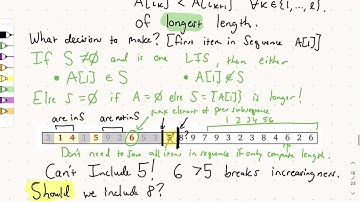 A[i_k] < A[i_{k+1}] ∀k∈{1, ..., ℓ}
of longest length.
What decisions to make? [first item in Sequence A[i]]
If S ≠ ∅ and is one LIS, then either
• A[i] ∈ S • A[i] ∉ S
Else S = ∅ if A = ∅ else S = {A[i]} is longer!
max element of prev subsequence
are in S are not in S 1 2 3 4 5 6
3 1 4 1 5 9 2 6 5 3 5 8? 9 7 9 3 2 3 8 4 6 2 6
Don't need to save all items in sequence if only compute length.
Can't Include 5! 6 > 5 breaks increasingness.
Should we include 8?